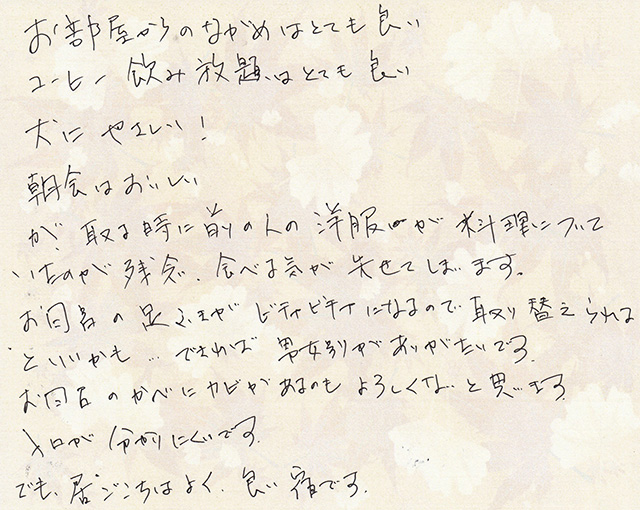 お部屋からのながめはとても良い
コーヒー 飲み放題はとても良い
犬に やさしい!
朝会はおいしい
が! 取る時に前の人の洋服が 料理について
いたのが残念、食べる気が 失せてしまいます。
お風呂の足ふきが ビチャビチャになるので、取り替えられる
といいかも… できれば 男女別がありがたいです。
お風呂のかべにカビがあるのも よろしくないと思います
入口が 分かりにくいです。
でも、居ごこちはよく、良い 宿です。